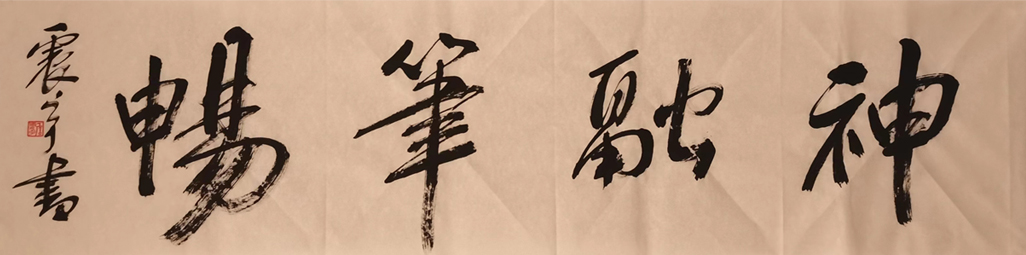 神融筆暢
震宇書